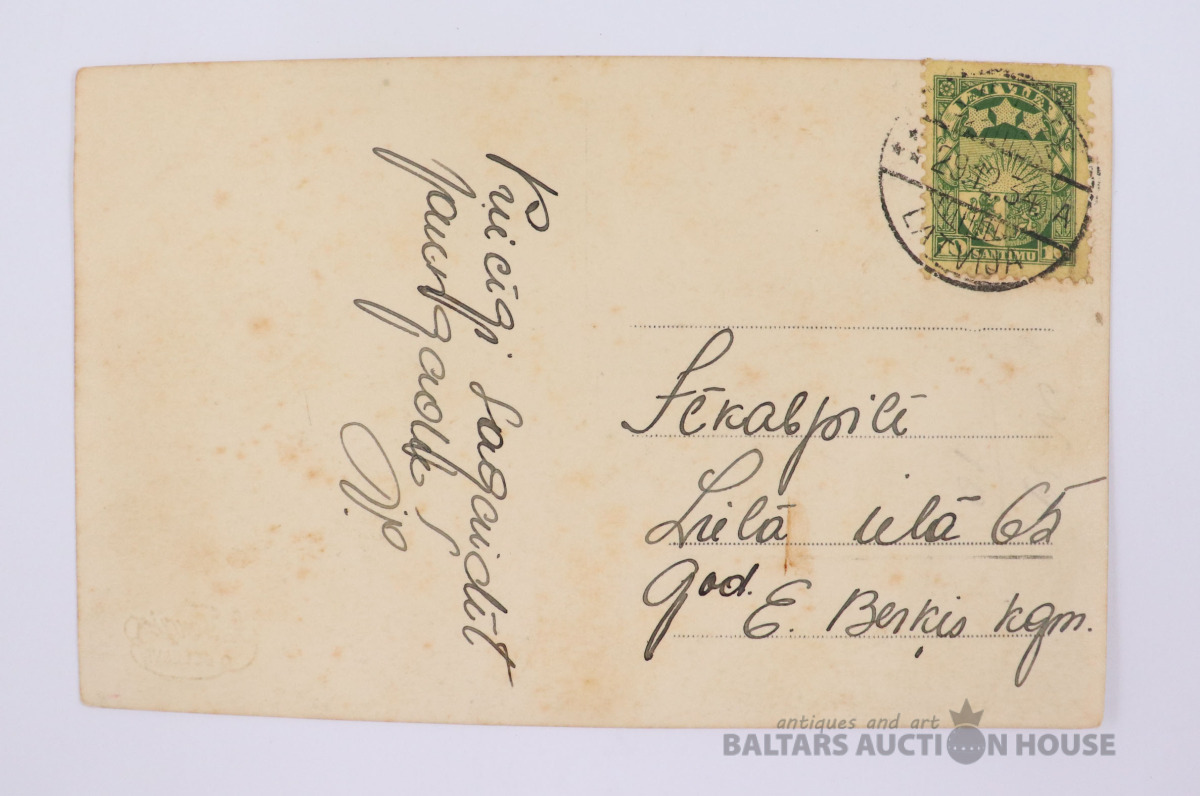 Priecīgi sagaidīt
Jaungadu!
Jēkabpilī
Lielā ielā 65
God. E. Berķis kgm.
LATVIJA
A
LATVIJA
10 SANTIMU 10
antiques and art
BALTARS AUCTION HOUSE